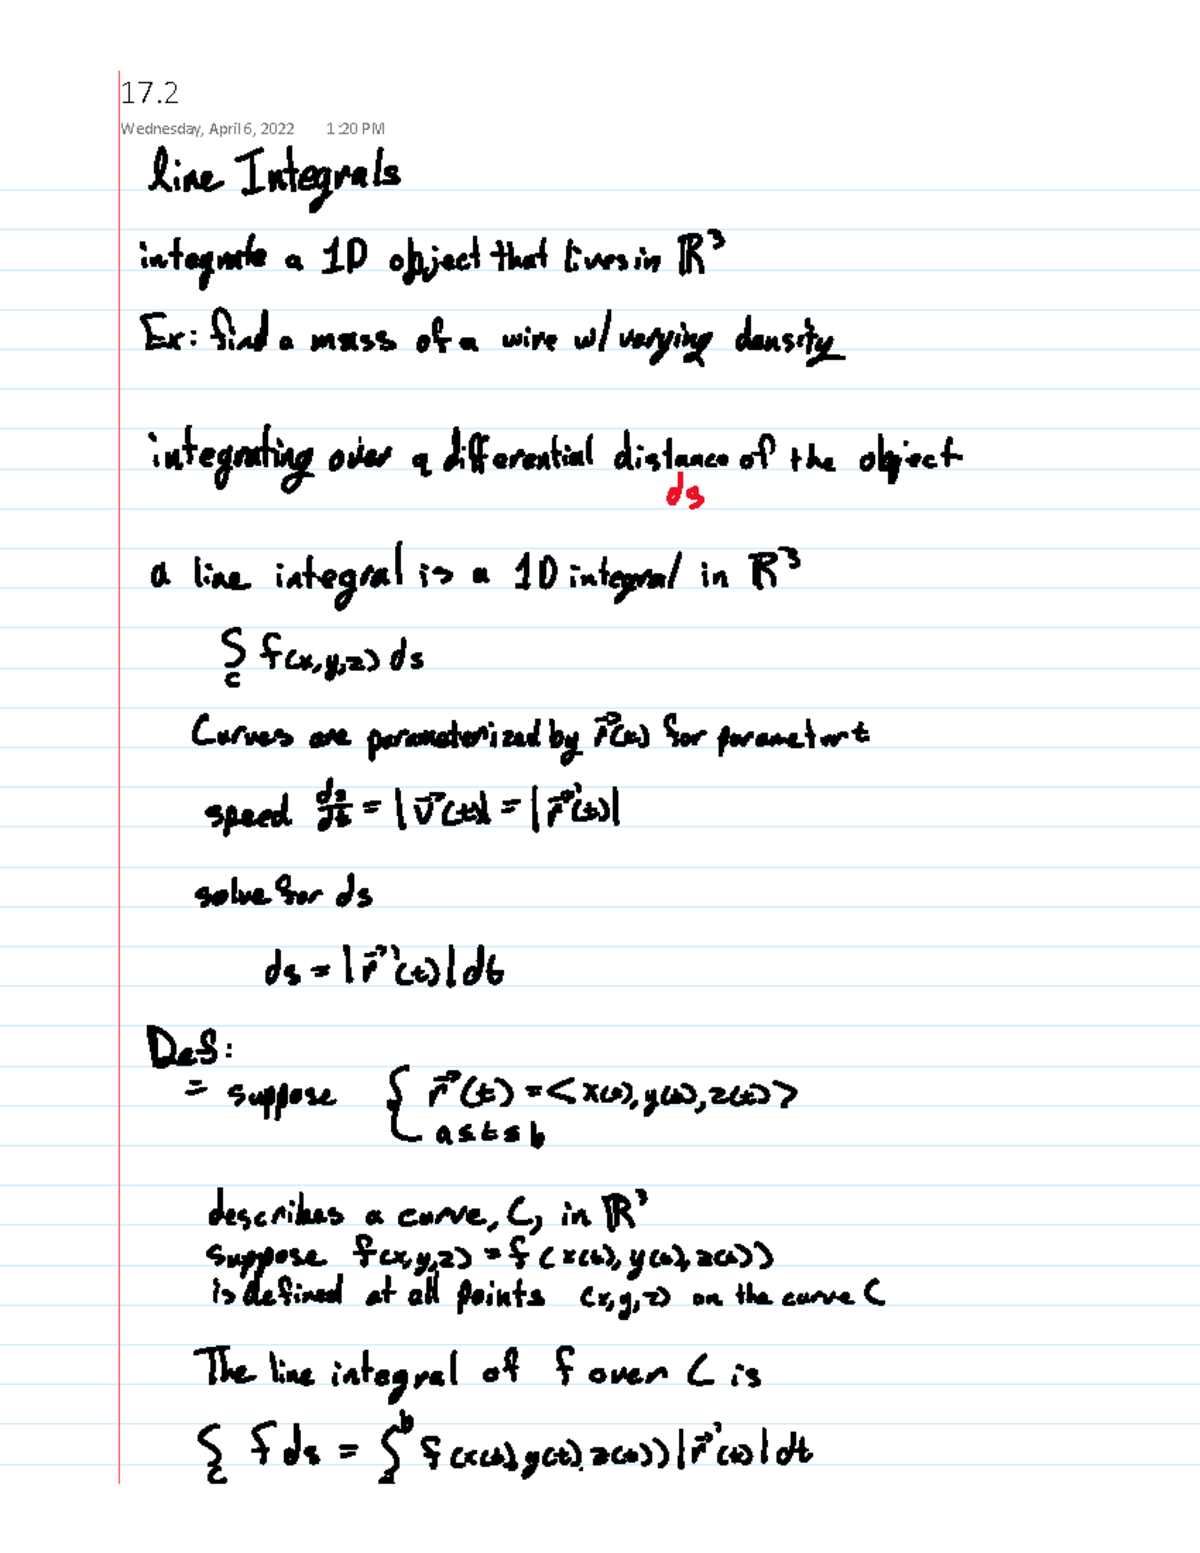 17.2
Wednesday, April 6, 2022 1:20 PM
line Integrals
integrate a 1D object that lives in ℝ³
Ex: find a mass of a wire w/ varying density
integrating over a differential distance of the object
ds
a line integral is a 1D integral in ℝ³
∫_C f(x,y,z) ds
Curves are parameterized by r⃗(t) for parameter t
speed ds/dt = |v⃗(t)| = |r⃗'(t)|
solve for ds
ds = |r⃗'(t)| dt
Def:
= suppose { r⃗(t) = <x(t), y(t), z(t)>
a ≤ t ≤ b
describes a curve, C, in ℝ³
suppose f(x,y,z) = f(x(t), y(t), z(t))
is defined at all points (x,y,z) on the curve C
The line integral of f over C is
∫_C f ds = ∫_a^b f(x(t), y(t), z(t)) |r⃗'(t)| dt